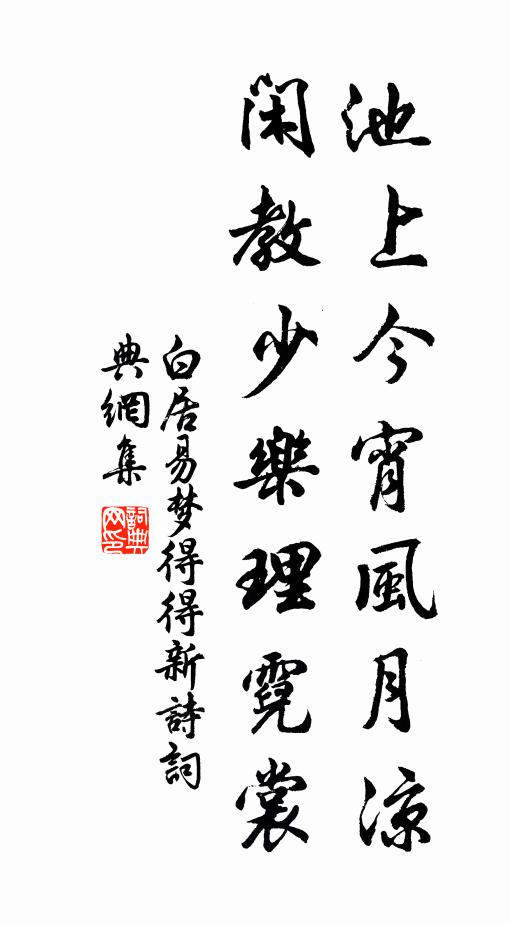 池上今宵風月涼
閑教少樂理霓裳
白居易梦得得新詩詞
典網集
詞典網印